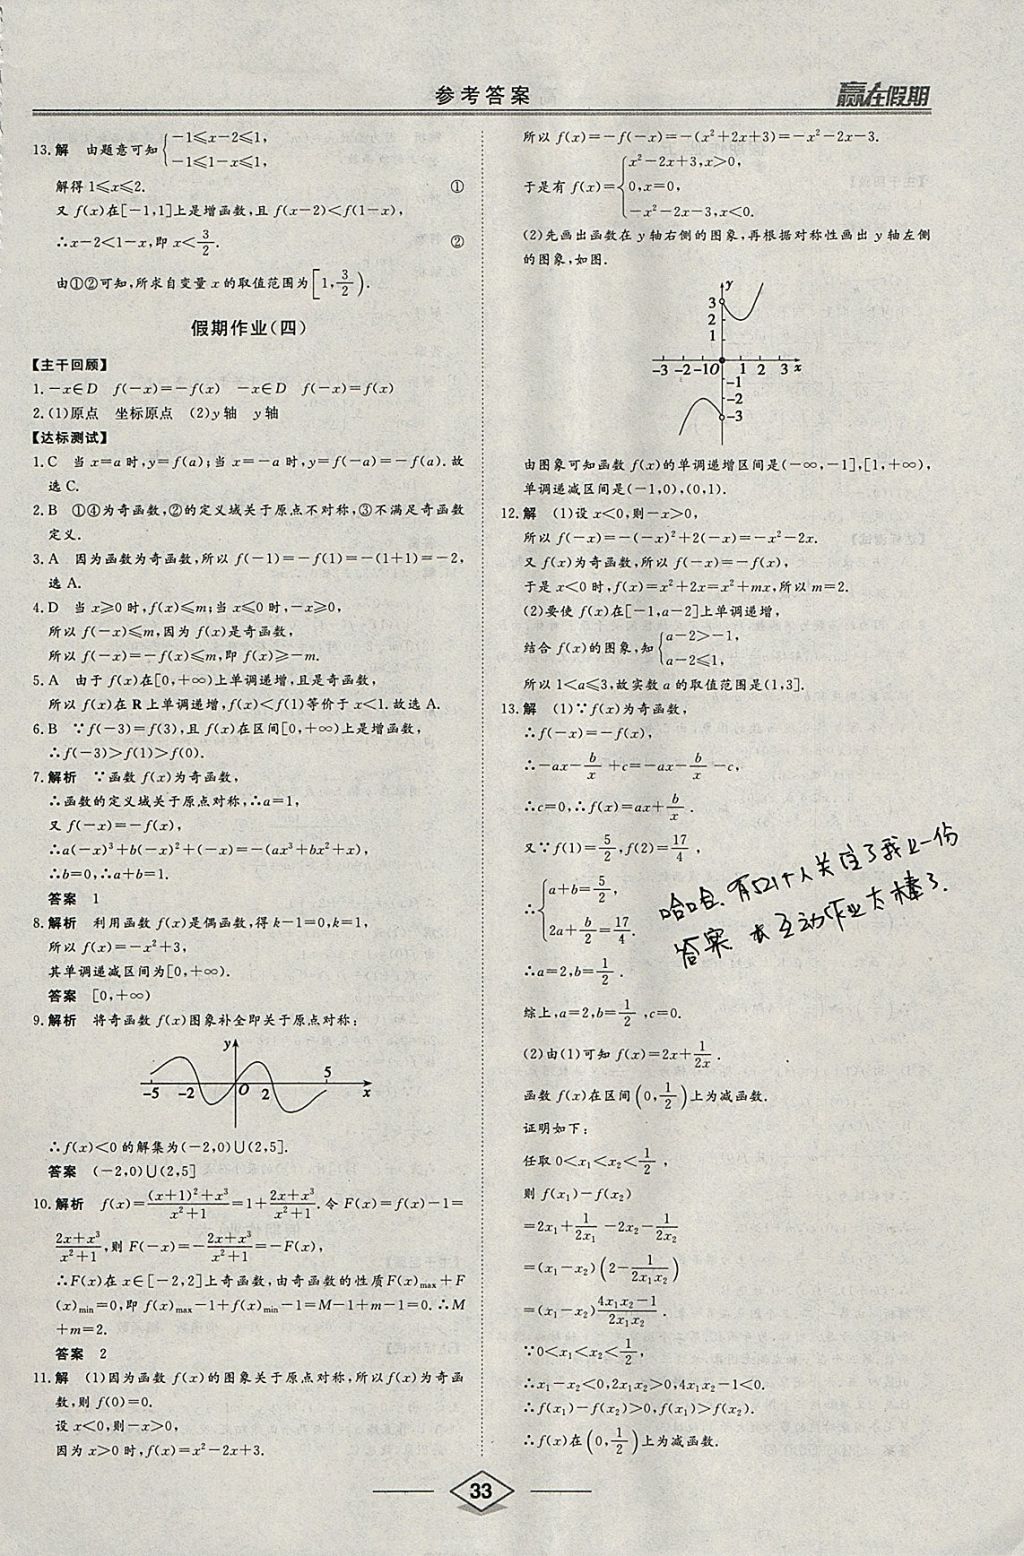 参考答案
赢在假期
13.解 由题意可知{-1≤x-2≤1,
-1≤1-x≤1,
解得1≤x≤2. ①
又f(x)在[-1,1]上是增函数,且f(x-2)<f(1-x),
∴x-2<1-x,即x<3/2. ②
由①②可知,所求自变量x的取值范围为[1,3/2).
假期作业(四)
【主干回顾】
1.-x∈D f(-x)=-f(x) -x∈D f(-x)=f(x)
2.(1)原点 坐标原点 (2)y轴 y轴
【达标测试】
1.C 当x=a时,y=f(a);当x=-a时,y=f(-a)=-f(a).故
选C.
2.B ①④为奇函数,②的定义域关于原点不对称,③不满足奇函数
定义.
3.A 因为函数为奇函数,所以f(-1)=-f(1)=-(1+1)=-2,
选A.
4.D 当x≥0时,f(x)≤m;当x≤0时,-x≥0,
所以f(-x)≤m,因为f(x)是奇函数,
所以f(-x)=-f(x)≤m,即f(x)≥-m.
5.A 由于f(x)在[0,+∞)上单调递增,且是奇函数,
所以f(x)在R上单调递增,f(x)<f(1)等价于x<1.故选A.
6.B ∵f(-3)=f(3),且f(x)在区间[0,+∞)上是增函数,
∴f(-3)>f(1)>f(0).
7.解析 ∵函数f(x)为奇函数,
∴函数的定义域关于原点对称,∴a=1,
又f(-x)=-f(x),
∴a(-x)³+b(-x)²+(-x)=-(ax³+bx²+x),
∴b=0,∴a+b=1.
答案 1
8.解析 利用函数f(x)是偶函数,得k-1=0,k=1,
所以f(x)=-x²+3,
其单调递减区间为[0,+∞).
答案 [0,+∞)
9.解析 将奇函数f(x)图象补全即关于原点对称:
y
5
-5 -2 O 2 x
∴f(x)<0的解集为(-2,0)∪(2,5].
答案 (-2,0)∪(2,5]
10.解析 f(x)=((x+1)²+x³)/(x²+1)=1+(2x+x³)/(x²+1).令F(x)=f(x)-1=
(2x+x³)/(x²+1),则F(-x)=-(2x+x³)/(x²+1)=-F(x),
∴F(x)在x∈[-2,2]上奇函数,由奇函数的性质F(x)max+F
(x)min=0,即f(x)max-1+f(x)min-1=M-1+m-1=0.∴M
+m=2.
答案 2
11.解 (1)因为函数f(x)的图象关于原点对称,所以f(x)为奇函
数,则f(0)=0.
设x<0,则-x>0,
因为x>0时,f(x)=x²-2x+3.
所以f(x)=-f(-x)=-(x²+2x+3)=-x²-2x-3.
于是有f(x)={x²-2x+3,x>0,
0,x=0,
-x²-2x-3,x<0.
(2)先画出函数在y轴右侧的图象,再根据对称性画出y轴左侧
的图象,如图.
y
3
2
1
-3 -2 -1 O 1 2 3 x
-1
-2
-3
由图象可知函数f(x)的单调递增区间是(-∞,-1],[1,+∞),
单调递减区间是(-1,0),(0,1).
12.解 (1)设x<0,则-x>0,
所以f(-x)=-(-x)²+2(-x)=-x²-2x.
又f(x)为奇函数,所以f(-x)=-f(x),
于是x<0时,f(x)=x²+2x=x²+mx,所以m=2.
(2)要使f(x)在[-1,a-2]上单调递增,
结合f(x)的图象,知{a-2>-1,
a-2≤1,
所以1<a≤3,故实数a的取值范围是(1,3].
13.解 (1)∵f(x)为奇函数,
∴f(-x)=-f(x),
∴-ax-b/x+c=-ax-b/x-c,
∴c=0,∴f(x)=ax+b/x.
又∵f(1)=5/2,f(2)=17/4,
∴{a+b=5/2,
2a+b/2=17/4.
∴a=2,b=1/2.
综上,a=2,b=1/2,c=0.
(2)由(1)可知f(x)=2x+1/2x.
函数f(x)在区间(0,1/2)上为减函数.
证明如下:
任取0<x₁<x₂<1/2,
则f(x₁)-f(x₂)
=2x₁+1/2x₁-2x₂-1/2x₂
=(x₁-x₂)(2-1/2x₁x₂)
=(x₁-x₂)(4x₁x₂-1)/2x₁x₂
∵0<x₁<x₂<1/2,
∴x₁-x₂<0,2x₁x₂>0,4x₁x₂-1<0.
∴f(x₁)-f(x₂)>0,f(x₁)>f(x₂).
∴f(x)在(0,1/2)上为减函数.
哈哈,有521个人关注了我上一份
答案,本互动作业太棒了.
33